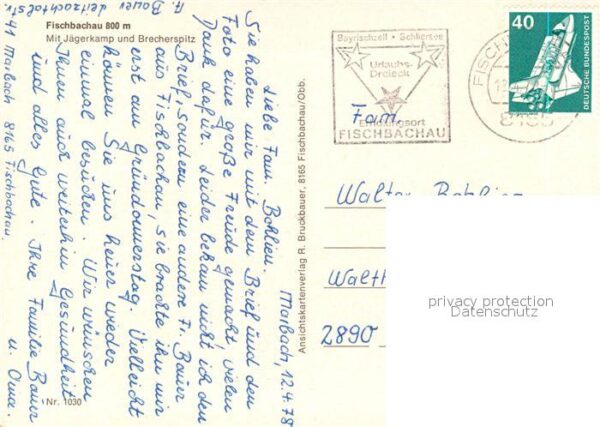 Fischbachau 800 m
Mit Jägerkamp und Brecherspitz
Marbach, 12.4.78
Liebe Fam. Bohlien.
Sie haben mir mit dem Brief und den
Foto eine große Freude gemacht vielen
Dank dafür. Leider bekam nicht ich den
Brief, sondern eine andere Fr. Baur
aus Fischbachau, sie brachte ihn mir
erst am Gründonnerstag. Vielleicht
können Sie uns heuer wieder
einmal besuchen. Wir wünschen
Ihnen auch weiterhin Gesundheit
und alles Gute. Ihre Familie Bauer
u. Oma.
F. Bauer Leitzachtalstr
41 Marbach 8165 Fischbachau.
Nr. 1030
Ansichtskartenverlag R. Bruckbauer, 8165 Fischbachau/Obb.
Bayrischzell • Schliersee
Urlaubs-
Dreieck
Erholungsort
FISCHBACHAU
FISCHB
8165
40
DEUTSCHE BUNDESPOST
Fam.
Walter
Walth
2890
privacy protection
Datenschutz